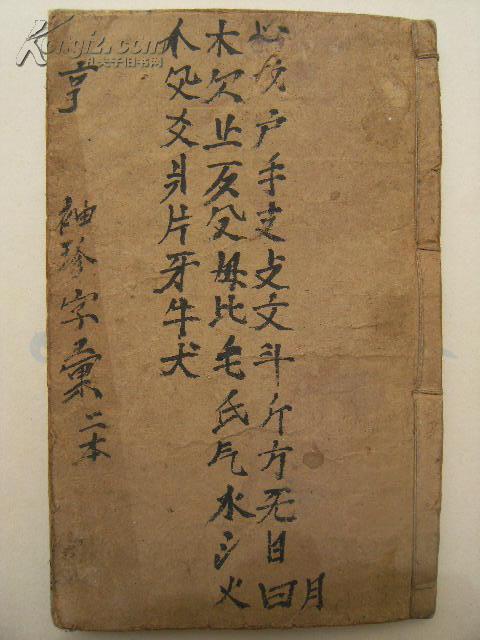 心戈户手支攴文斗斤方无日曰月
木欠止歹殳毋比毛氏气水氵火
爻爿片牙牛犬
亨
袖珍字彙 二本
孔夫子旧书网